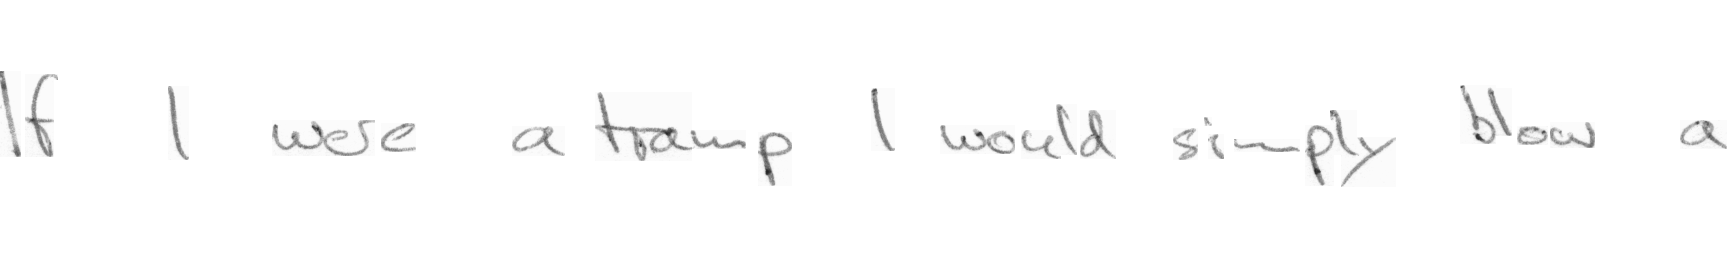 If I were a tramp I would simply blow a